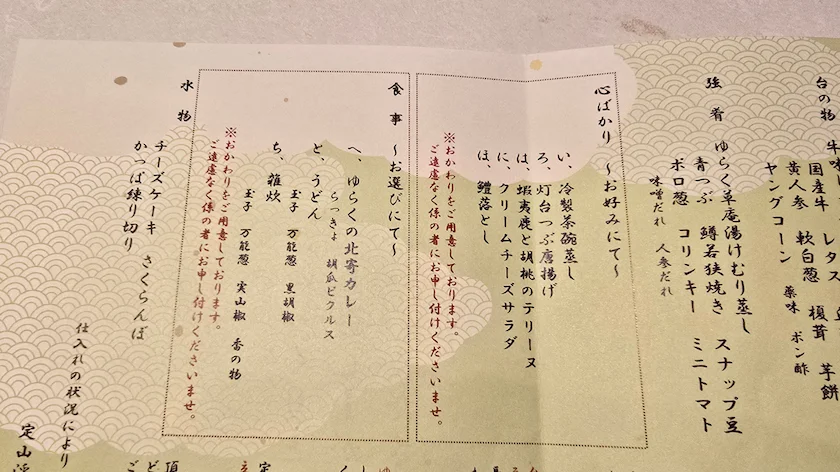 台の物　牛味
国産牛　レタス
黄人参　軟白葱　榎茸　芋餅
ヤングコーン　薬味　ポン酢
強　肴　ゆらく草庵湯けむり蒸し
青つぶ　鱒若狭焼き　スナップ豆
ポロ葱　コリンキー　ミニトマト
味噌だれ　人参だれ
心ばかり　～お好みにて～
い、冷製茶碗蒸し
ろ、灯台つぶ唐揚げ
は、蝦夷鹿と胡桃のテリーヌ
に、クリームチーズサラダ
ほ、鱧落とし
※おかわりをご用意しております。
ご遠慮なく係の者にお申し付けくださいませ。
食　事　～お選びにて～
へ、ゆらくの北寄カレー
らっきょ　胡瓜ピクルス
と、うどん
玉子　万能葱　黒胡椒
ち、雑炊
玉子　万能葱　実山椒　香の物
※おかわりをご用意しております。
ご遠慮なく係の者にお申し付けくださいませ。
水　物
チーズケーキ　さくらんぼ
かっぱ練り切り
仕入れの状況により
定山渓